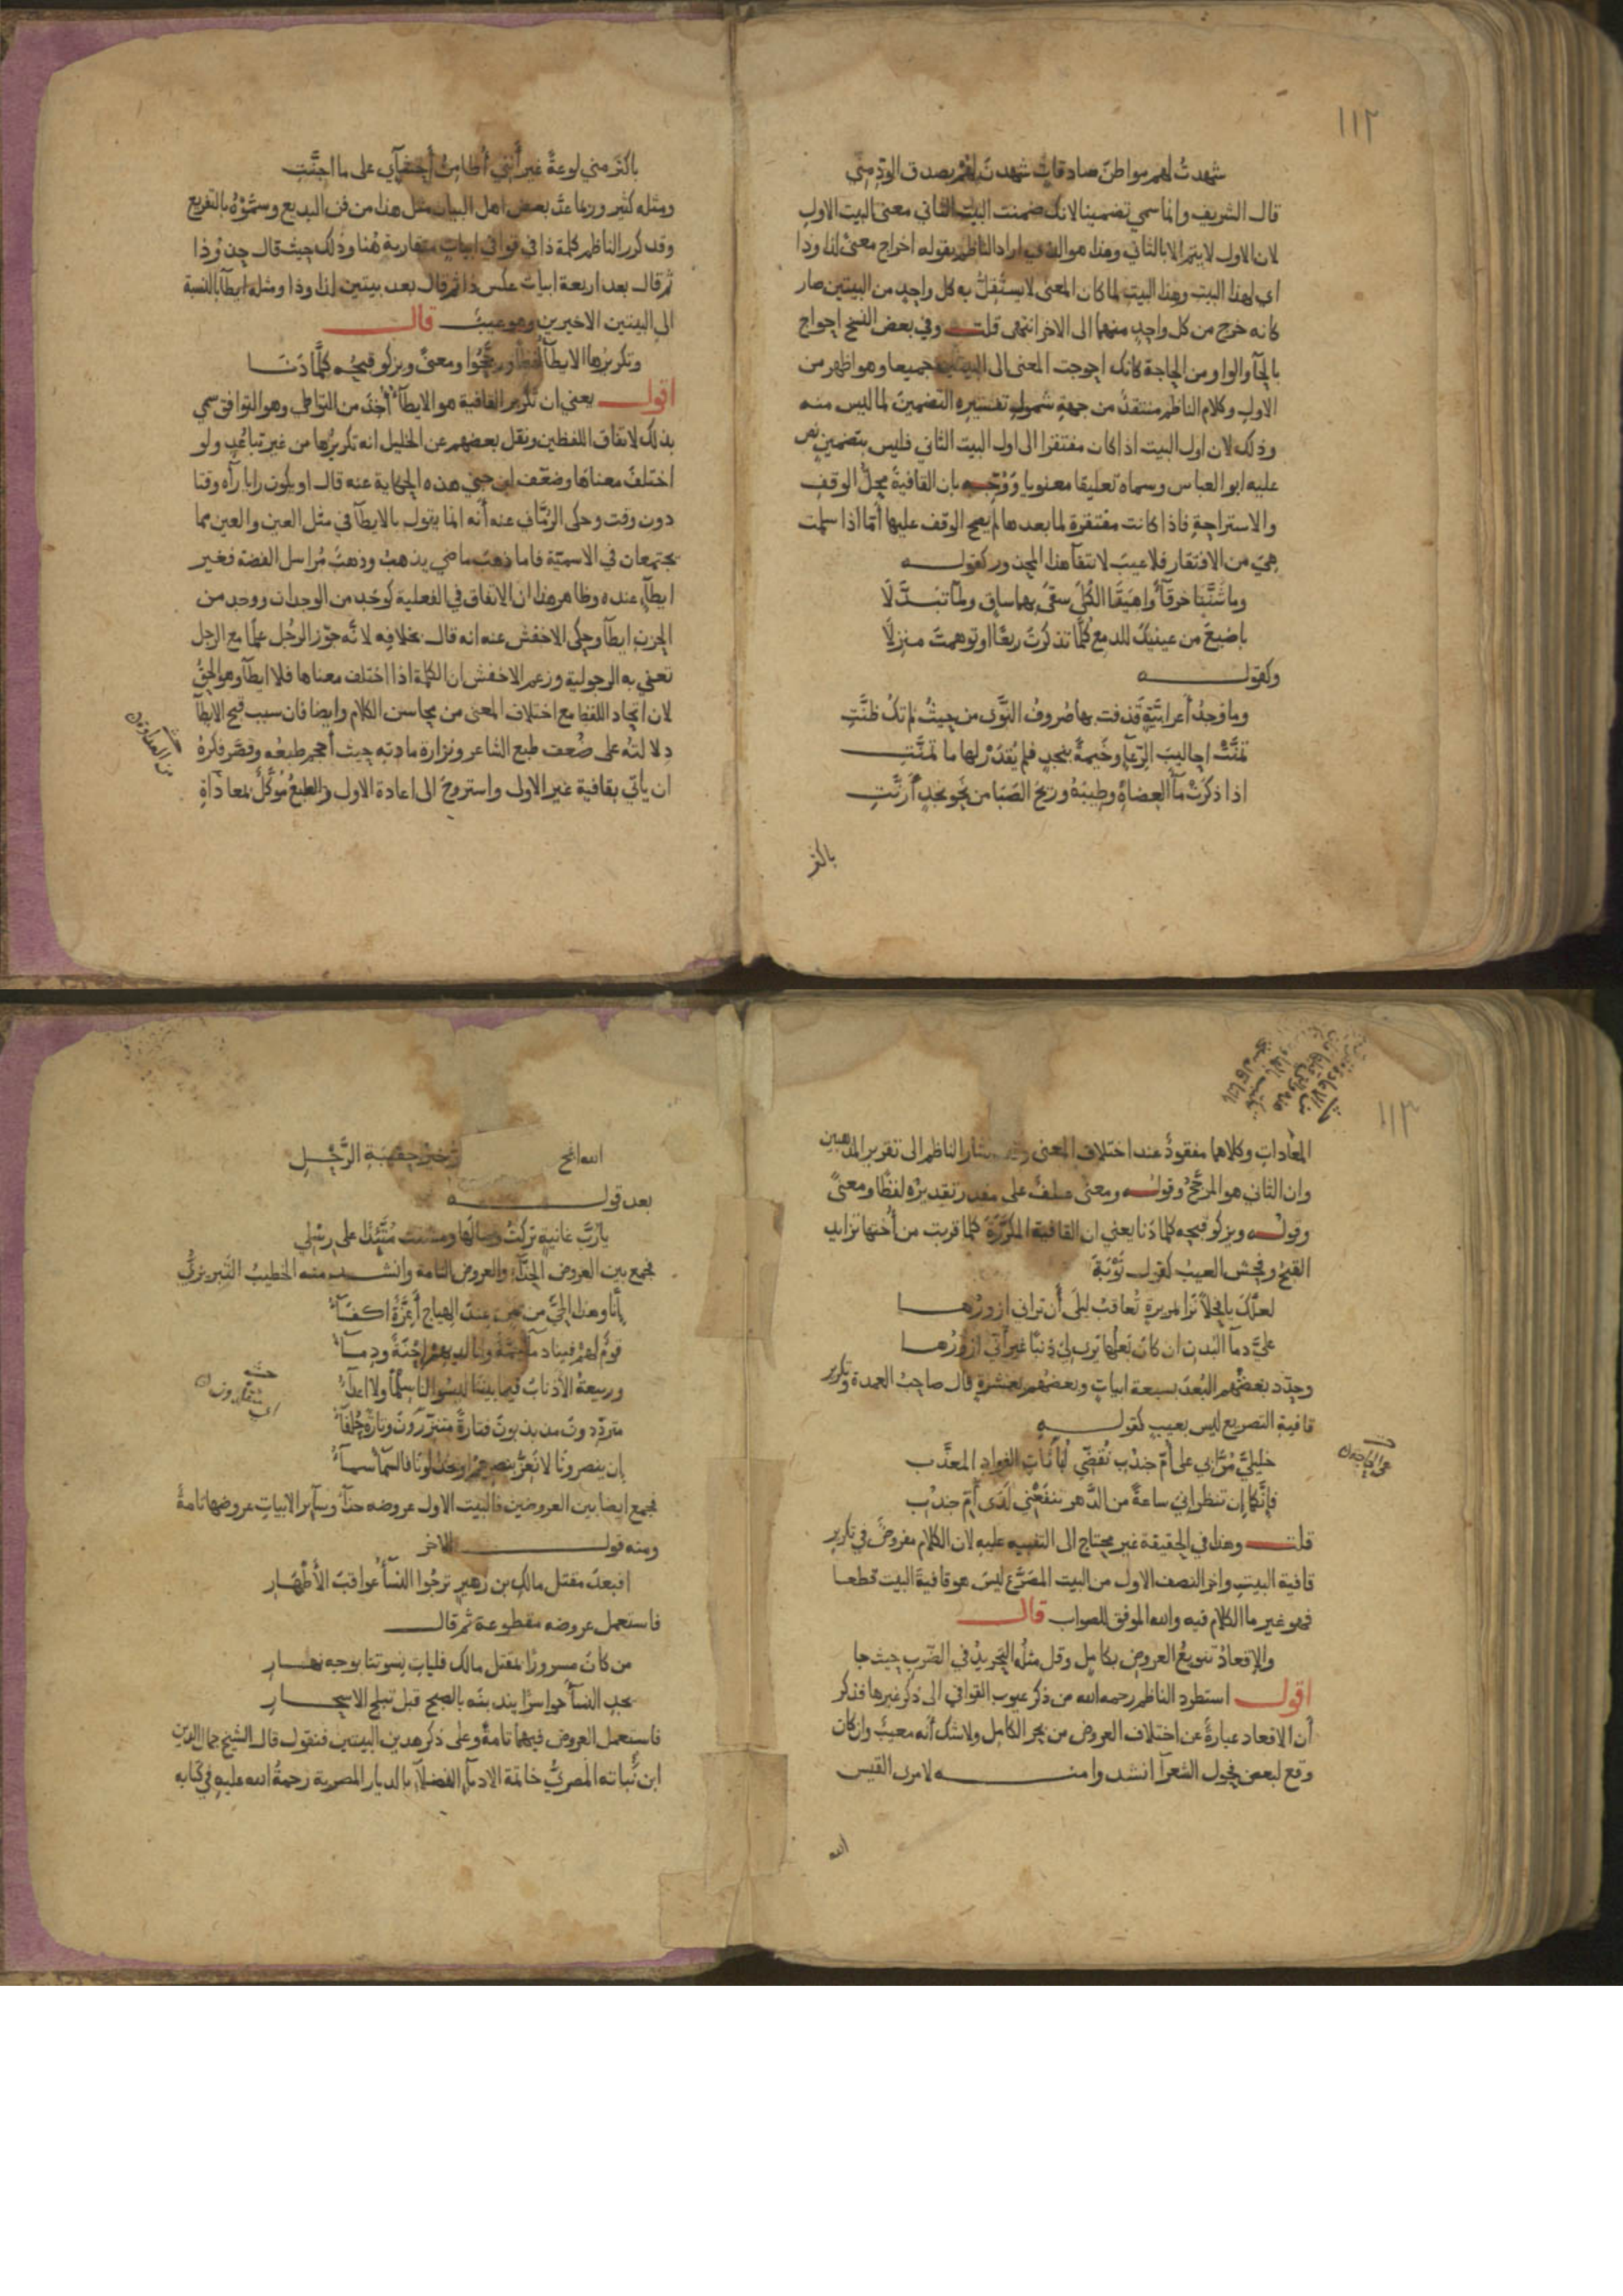 ١١٢
شهدتُ لهم مواطنَ صادقاتٍ شهدنَ لهم بصدق الودِّ منّي
قال الشريف وانما سمي تضمينا لانك ضمنت البيت الثاني معنى البيت الاول
لان الاول لا يتم الا بالثاني وهذا هو الذي اراد الناظم بقوله اخراج معنىً لذا وذا
اي لهذا البيت وهذا البيت لما كان المعنى لا يستقلُّ به كل واحدٍ من البيتين صار
كانه خرج من كل واحدٍ منهما الى الاخر انتهى قلت وفي بعض النسخ احواج
بالحآ والواو من الحاجة كانك احوجت المعنى الى البيتين جميعا وهو اظهر من
الاول وكلام الناظم منتقدٌ من جهةِ شمولِ تفسيرِهِ التضمينَ لما ليس منه
وذلك لان اول البيت اذا كان مفتقرا الى اول البيت الثاني فليس بتضمينٍ نص
عليه ابو العباس وسماه تعليقا معنويا ووُجِّه بان القافيةَ محلُّ الوقفِ
والاستراحةِ فاذا كانت مفتقرة لما بعدها لم يصح الوقف عليها أمّا اذا سلمت
هِيَ من الافتقار فلا عيبَ لانتفآ هذا المحذور كقوله
وما شَنَّتا خرقآءَ واهيتا الكُلَى سقَى بهما ساقٍ ولمّا تبَدَّلَا
باضيعَ من عينيكَ للدمعِ كُلَّما تذكرتَ ربعًا او توهمتَ منزِلَا
وكقوله
وما وَجدُ أعرابيَّةٍ قَذفت بها صُروفُ النَّوَى من حيثُ لم تكُ ظنَّتِ
تمنَّتْ احاليبَ الرِّعآءِ وخَيمةً بنجدٍ فلم يُقدَرْ لها ما تمنَّتِ
اذا ذكرَتْ مآءَ العِضاهِ وطِيبَهُ وريحَ الصَبَا من نحوِ نجدٍ أرنَّتِ
باكثر
باكثرَ مني لوعةً غيرَ أنني أُطامِنُ أحشآي على ما اجنَّتِ
ومثله كثير وربما عدَّ بعض اهل البيان مثل هذا من فن البديع وسمَّوْهُ بالتفريع
وقد كرر الناظم كلمة ذا في قوافي ابيات متقاربة هُنا وذلك حيث قال
ثم قال بعد اربعة ابيات عكس ذا ثم قال بعد بيتين لذا وذا ومثله ايطآءٌ بالنسبة
الى البيتين الاخيرين وهو عيبٌ قال
وتكريرُها الايطآءُ لفظًا ورجَّحُوا ومعنىً ويزكو قبحُه كلَّما دَنَا
اقول يعني ان تكرير القافية هو الايطآءُ أُخِذَ من التواطي وهو التوافق سمي
بذلك لاتفاق اللفظين ونقل بعضهم عن الخليل انه تكريرُها من غير تباعُدٍ ولو
اختلفَ معناها وضعَّف ابن جني هذه الحكاية عنه قال او يكون رايا رآه وقتا
دون وقت وحكى الرُّمَّاني عنه أنّه انما يقول بالايطآ في مثل العين والعين مما
يجتمعان في الاسميّة فاما ذهبَ ماضي يذهبُ وذهبٌ مُراسل الفضة فغير
ايطآءٍ عنده وظاهر هذا ان الاتفاق في الفعلية كوَجَد من الوجدان ووجد من
الحزن ايطآءٌ وحكى الاخفش عنه انه قال بخلافِه لانّه جوّز الرجُل علَمًا مع الرجل
تعني به الرجولية وزعم الاخفش ان الكلمة اذا اختلف معناها فلا ايطآء وهو الحقُّ
لان اتحاد اللفظ مع اختلاف المعنى من محاسن الكلام وايضا فان سبب قبح الايطآ
دِلالتُه على ضُعف طبع الشاعر ونزارة مادتِه حيث أحجم طبعُه وقصَّر فكرُهُ
ان ياتي بقافية غير الاولى واستروحَ الى اعادة الاولى والطبعُ مُوكَّلٌ بمعاداةِ
١١٣
المُعاداتِ وكلاهما مفقودٌ عند اختلاف المعنى اشار الناظم الى تقرير المذهبين
وان الثاني هو المرجَّحُ وقوله ومعنى عطفٌ على مقدر تقديرُه لفظًا ومعنىً
وقوله ويزكو قبحه كلما دَنا يعني ان القافية المكرَّرَةَ كلما قربت من أُختها تزايد
القبحُ وفحش العيبُ كقول تَوْبَةَ
لعلَّكَ يا تيسًا نَزَا في مريرةٍ تُعاقبُ ليلَى أن تراني ازورُها
عليَّ دمآءُ البُدنِ ان كانَ بَعلُها يَرى ليَ ذنبًا غيرَ أني ازُورُها
وحدَّد بعضُهم البُعدَ بسبعة ابياتٍ وبعضُهم بعشرةٍ قال صاحبُ العمدة وتكرير
قافية التصريع ليس بعيبٍ كقوله
خليليَّ مُرَّا بي على أمِّ جندُبِ نُقضِّي لُباناتِ الفوادِ المعذَّبِ
فإنَّكما إن تنظرانيَ ساعةً من الدَّهر تنفعْني لَدَى أمِّ جندُبِ
قلت وهذا في الحقيقة غير محتاج الى التنبيه عليه لان الكلام مفروضٌ في تكرير
قافية البيتِ واخر النصف الاول من البيت المصَرَّعِ ليسَ هو قافيةَ البيت قطعا
فهو غير ما الكلام فيه والله الموفق للصواب قال
والإقعادُ تنويعُ العروضِ بكامِلٍ وقل مثلُه التحريدُ في الضَّرب حيث جا
اقول استطرد الناظم رحمه الله من ذكر عيوب القوافي الى ذكر غيرها فذكر
أن الاقعاد عبارةٌ عن اختلاف العروض من بحر الكامل ولا شك أنه معيبٌ وان كان
وقع لبعض فحول الشعرآ انشدوا منه لامرئ القيس
الله
الله انجح خيرُ حقيبَةِ الرَّحْلِ
بعد قوله
يا رُبَّ غانيةٍ تركتُ وصالَها ومشَيتُ مُتَّئِدًا على رِسْلي
فجمع بين العروض الحذّآءِ والعروض التامة وانشد منه الخطيبُ التبريزيُّ
إنّا وهذا الحيَّ من يمنٍ عِندَ الهِياجِ أعِزَّةٌ اكفآءُ
قومٌ لهم فينا دمآءٌ جمَّةٌ ولنا لديهم إحْنَةٌ ودِمآءُ
وربيعةُ الأذنابُ فيما بيننا ليسُوا لنا سِلْمًا ولا اعدآءُ
متردِّدونَ مذبذبونَ فتارةً متنزِّرُونَ وتارةً حُلفآءُ
إن ينصرونا لا نَعِزُّ بنصرِهِمْ او يخذلونا فالسَّمآءُ سمآءُ
فجمع ايضا بين العروضين فالبيت الاول عروضه حذآءُ وسآير الابيات عروضها تامةٌ
ومنه قول الاخر
افبعدَ مقتل مالكِ بن زهيرٍ ترجُوا النسآءُ عواقبَ الأطهَارِ
فاستعمل عروضه مقطوعة ثم قال
من كانَ مسرورًا بمقتل مالكٍ فليات نِسوتنا بوجه نهارِ
يجدِ النسآءَ حواسرًا يندبنَه بالصبح قبل تبلج الاسحارِ
فاستعمل العروض فيهما تامةً وعلى ذكر هذين البيتين فنقول قال الشيخ جمال الدين
ابن نُباته المصريُّ خاتمة الادبآءِ الفضلآءِ بالديار المصرية رحمةُ الله عليهِ في كتابه